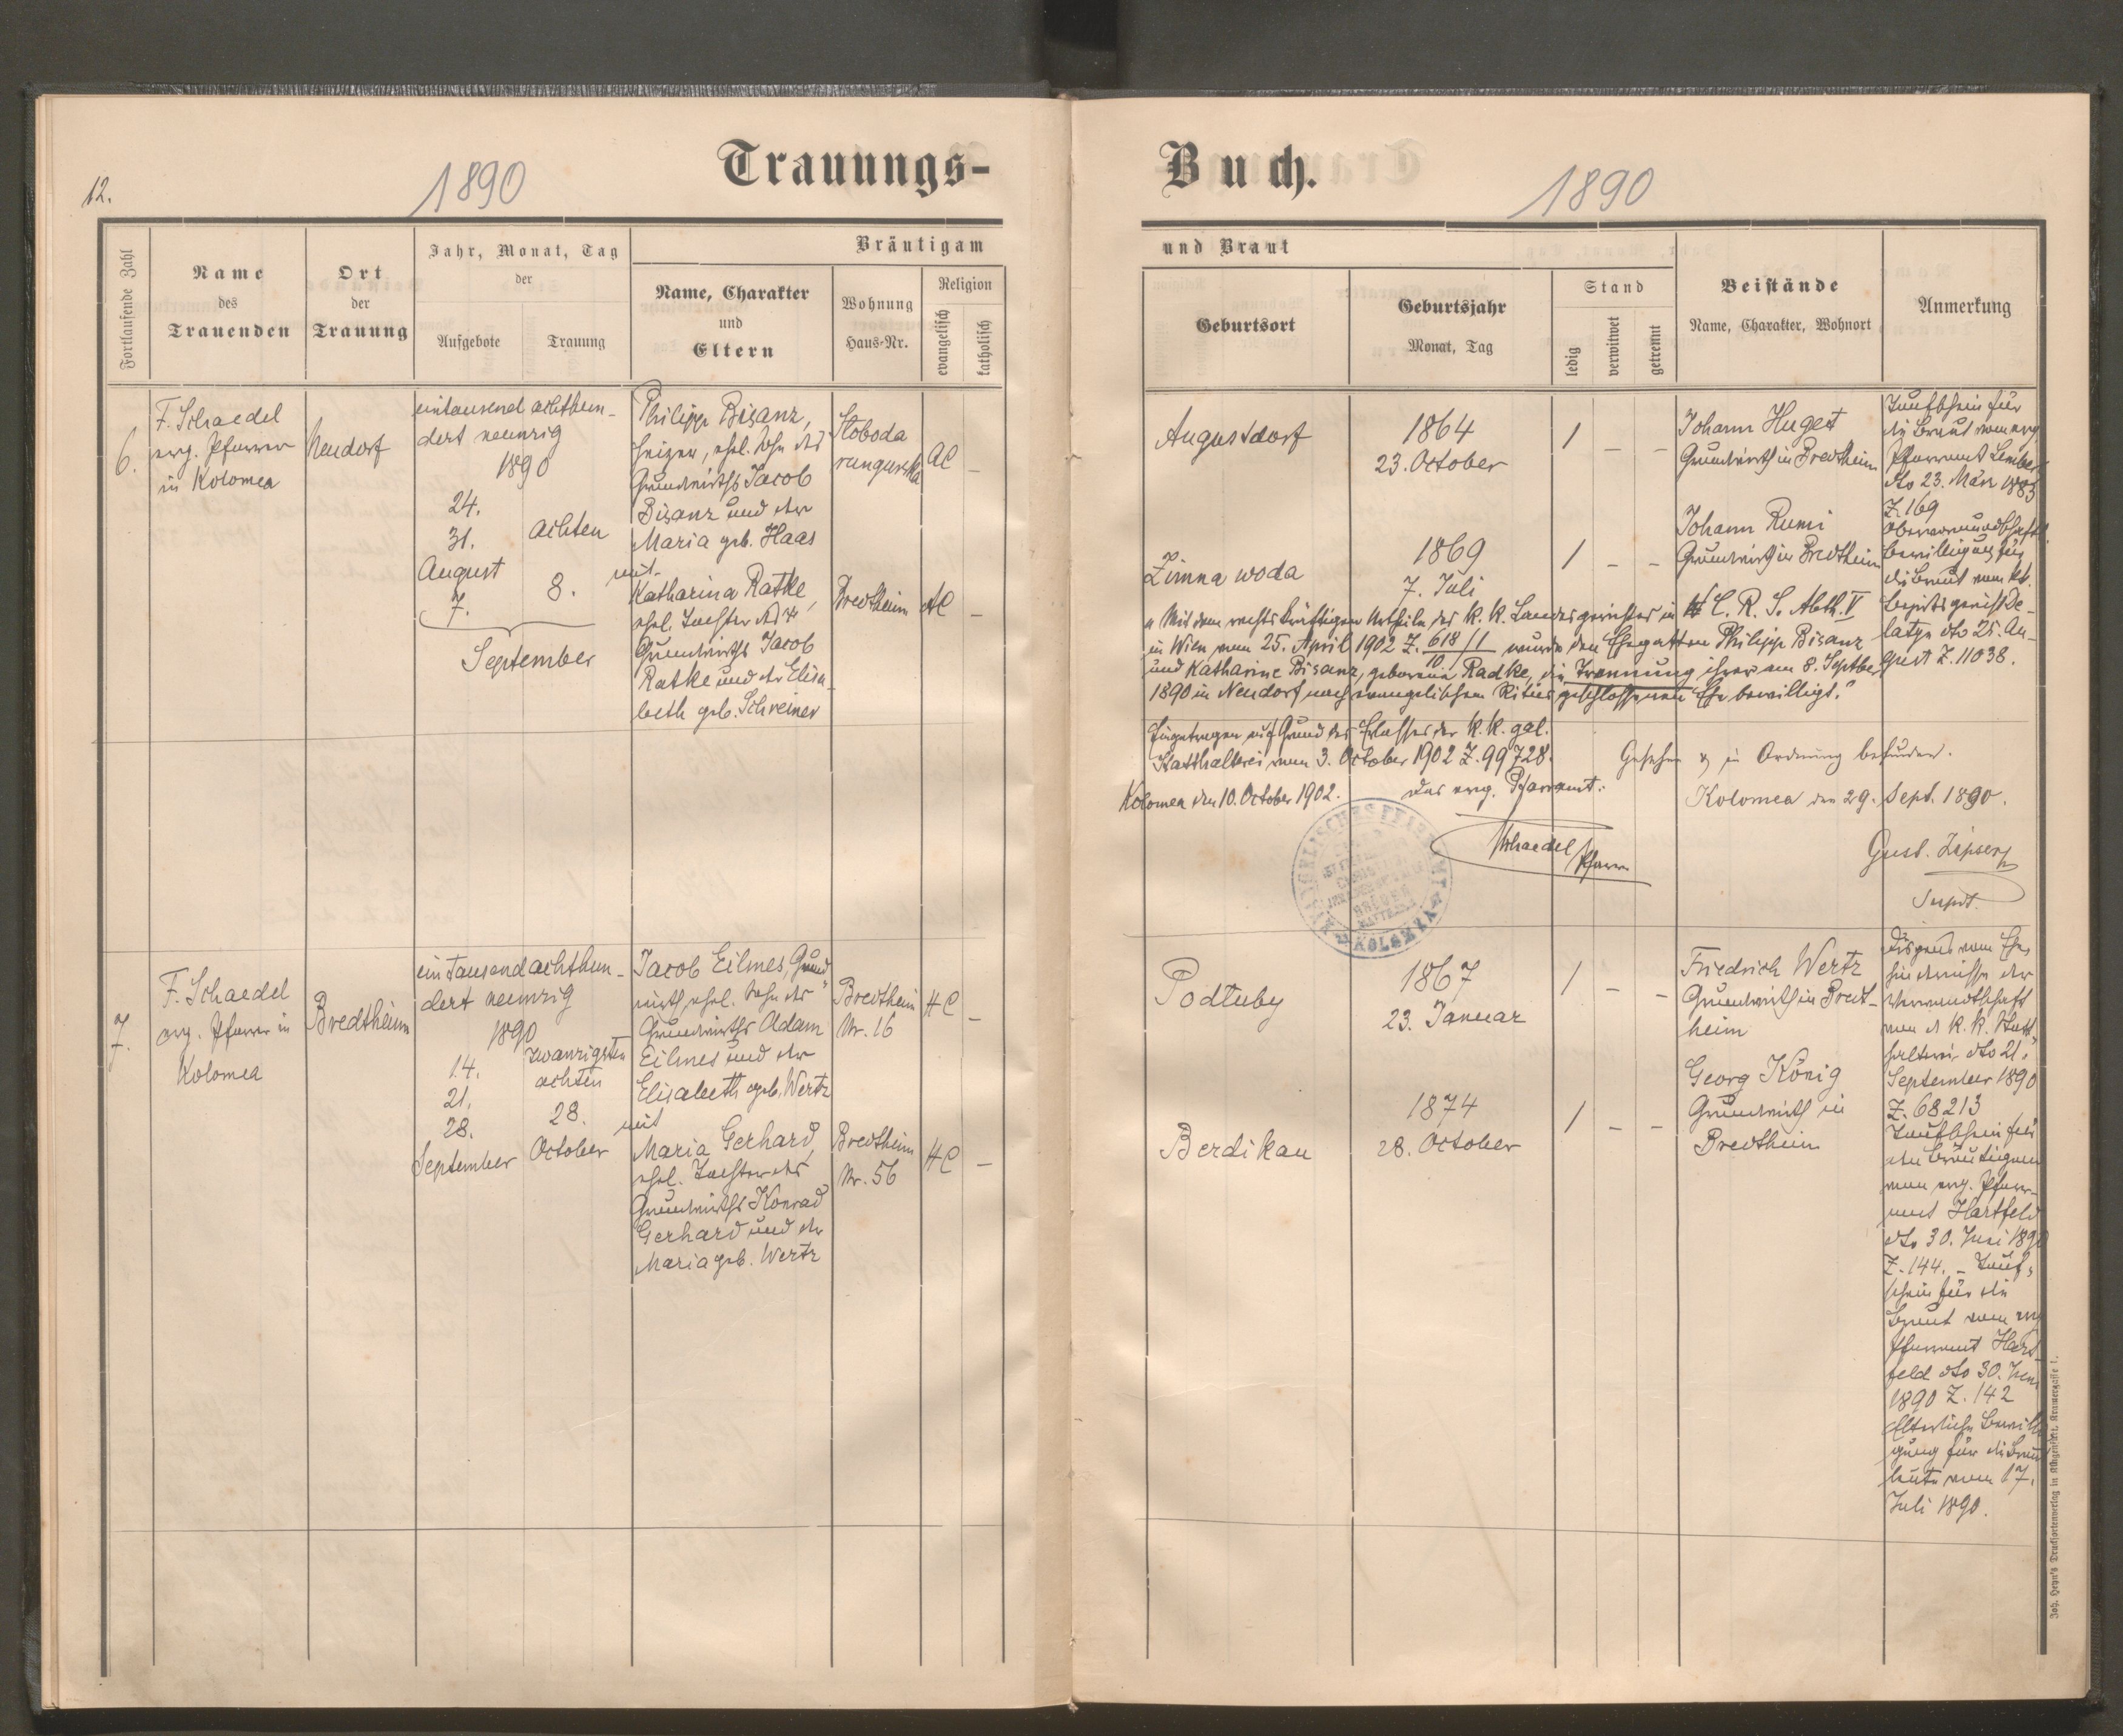 12.
1890
Trauungs-
Fortlaufende Zahl
Name
des
Trauenden
Ort
der
Trauung
Jahr, Monat, Tag
der
Aufgebote
Trauung
Bräutigam
Name, Charakter
und
Eltern
Wohnung
Haus-Nr.
Religion
evangelisch
katholisch
6.
F. Schaedel
evg. Pfarrer
in Kolomea
Neudorf
eintausend achthun-
dert neunzig
1890
24.
31.
August
7.
September
achten
8.
Philipp Bisanz,
Heizer, ehel. Sohn des
Grundwirths Jacob
Bisanz und der
Maria geb. Haas
mit
Katharina Ratke,
ehel. Tochter des
Grundwirths Jacob
Ratke und der Elisa-
beth geb. Schreiner
Sloboda
rungurska
AC
–
Bredtheim
AC
–
7.
F. Schaedel
evg. Pfarrer in
Kolomea
Bredtheim
ein tausend achthun-
dert neunzig
1890
14.
21.
28.
September
zwanzigsten
achten
28.
October
Jacob Eilmes, Grund-
wirth, ehel. Sohn des
Grundwirths Adam
Eilmes und der
Elisabeth geb. Wertz
mit
Maria Gerhard,
ehel. Tochter des
Grundwirths Konrad
Gerhard und der
Maria geb. Wertz
Bredtheim
Nr. 16
HC
–
Bredtheim
Nr. 56
HC
–
Buch.
1890
und Braut
Geburtsort
Geburtsjahr
Monat, Tag
Stand
ledig
verwitwet
getrennt
Beistände
Name, Charakter, Wohnort
Anmerkung
Augustdorf
1864
23. October
1 – –
Johann Huget
Grundwirth in Bredtheim
Zimna woda
1869
7. Juli
1 – –
Johann Rumi
Grundwirth in Bredtheim
Taufschein für
die Braut vom evg.
Pfarramt Lemberg
dto 23. März 1885
Z. 169
Obervormundschaftl.
Bewilligung für
die Braut vom kk.
Bezirksgericht De-
latyn dto 25. Au-
gust Z. 11038.
"Mit dem rechtskräftigen Urtheile des k. k. Landesgerichtes in C. R. S. Abth. V
in Wien vom 25. April 1902 Z. 618/10 /1 wurde den Ehegatten Philipp Bisanz
und Katharine Bisanz, geborene Radke, die Trennung ihrer am 8. Septber
1890 in Neudorf nach evangelischem Ritus geschlossenen Ehe bewilligt."
Eingetragen auf Grund des Erlasses der k. k. gal.
Statthalterei vom 3. October 1902 Z. 99728.
Kolomea den 10. October 1902.
Das evg. Pfarramt:
Schaedel
Pfarrer
KOLOMEA
Gesehen & in Ordnung befunden.
Kolomea den 29. Sept. 1890.
Gust. Zipser
Supdt.
Podłuby
1867
23. Januar
1 – –
Friedrich Wertz
Grundwirth in Bredt-
heim
Berdikau
1874
28. October
1 – –
Georg König
Grundwirth in
Bredtheim
Dispens vom Ehe-
hindernisse der
Verwandtschaft
von d k. k. Statt-
halterei dto 21.
September 1890
Z. 68213
Taufschein für
den Bräutigam
vom evg. Pfarr-
amt Hartfeld
dto 30. Juni 1890
Z. 144. – Tauf-
schein für die
Braut vom evg
Pfarramt Hart-
feld dto 30. Juni
1890 Z. 142
Elterliche Bewilli-
gung für die Braut-
leute vom 17.
Juli 1890.
Joh. Heyn's Drucksortenverlag in Klagenfurt, Kramergasse 1.